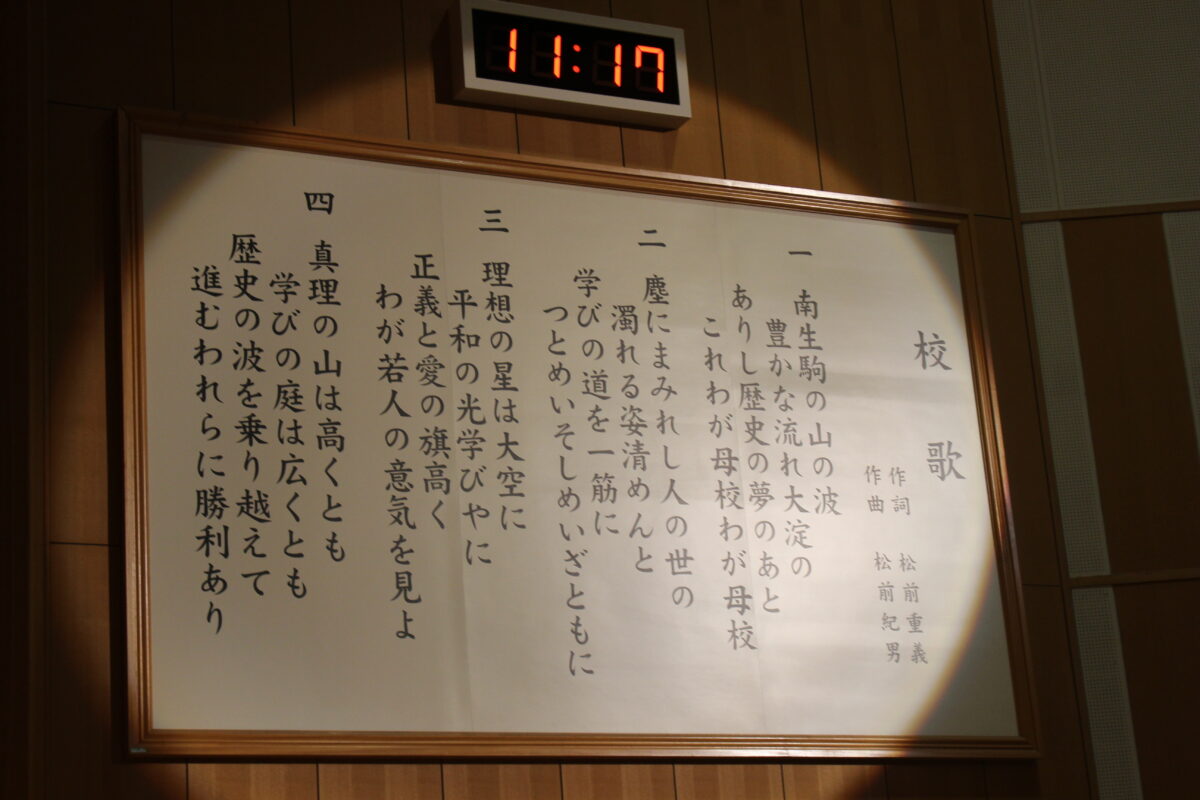 11:17
校歌
作詞 松前重義
作曲 松前紀男
一 南生駒の山の波
豊かな流れ大淀の
ありし歴史の夢のあと
これわが母校わが母校
二 塵にまみれし人の世の
濁れる姿清めんと
学びの道を一筋に
つとめいそしめいざともに
三 理想の星は大空に
平和の光学びやに
正義と愛の旗高く
わが若人の意気を見よ
四 真理の山は高くとも
学びの庭は広くとも
歴史の波を乗り越えて
進むわれらに勝利あり